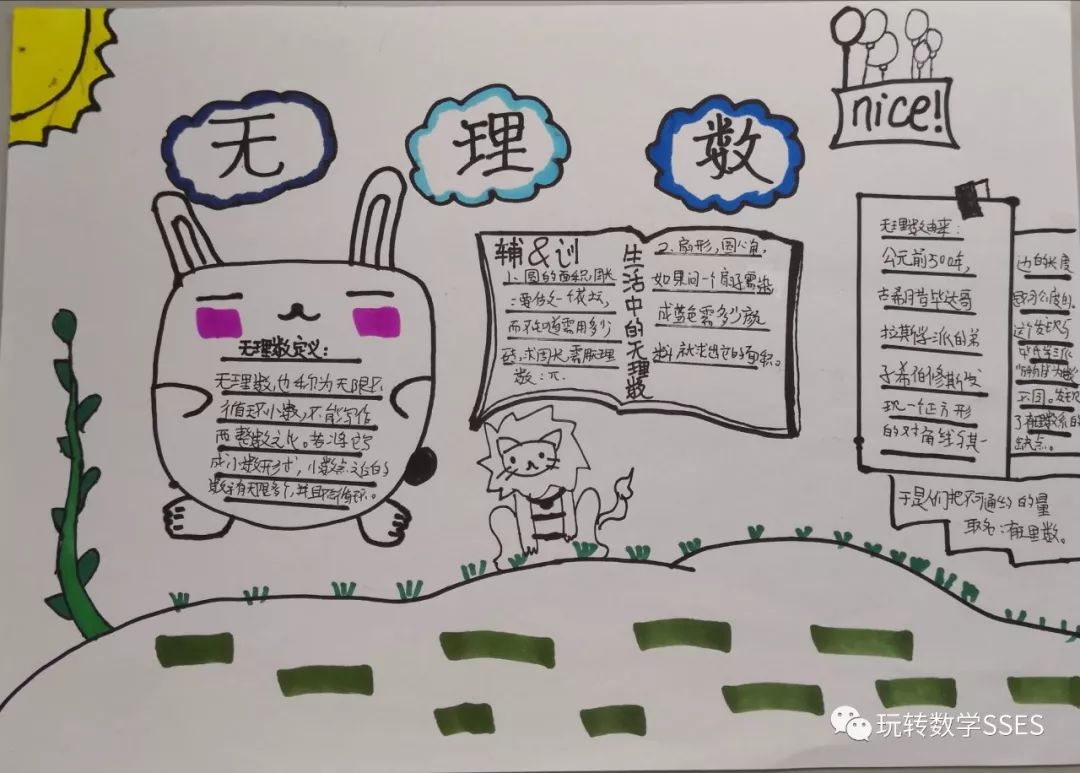 无理数
nice!
无理数定义：
无理数,也称为无限不
循环小数,不能写作
两整数之比。若将它写
成小数形式，小数点之后的
数字有无限多个,并且不会循环。
辅&训
1、圆的面积,周长
:要做一个花坛，
而不知道需用多少
砖,求周长,需用无理
数:π.
生活中的无理数
2.扇形,圆心角，
如果问一个扇子需染
成蓝色需多少颜
料,就求出它的面积。
无理数由来：
公元前500年，
古希腊毕达哥
拉斯学派的弟
子希伯修斯发
现一个正方形
的对角线与其一
边的长度
是不可公度的。
这个发现与
毕氏学派
不同。发现
了有理数系的
缺点。
于是人们把不可通约的量
取名:无理数。
玩转数学SSES